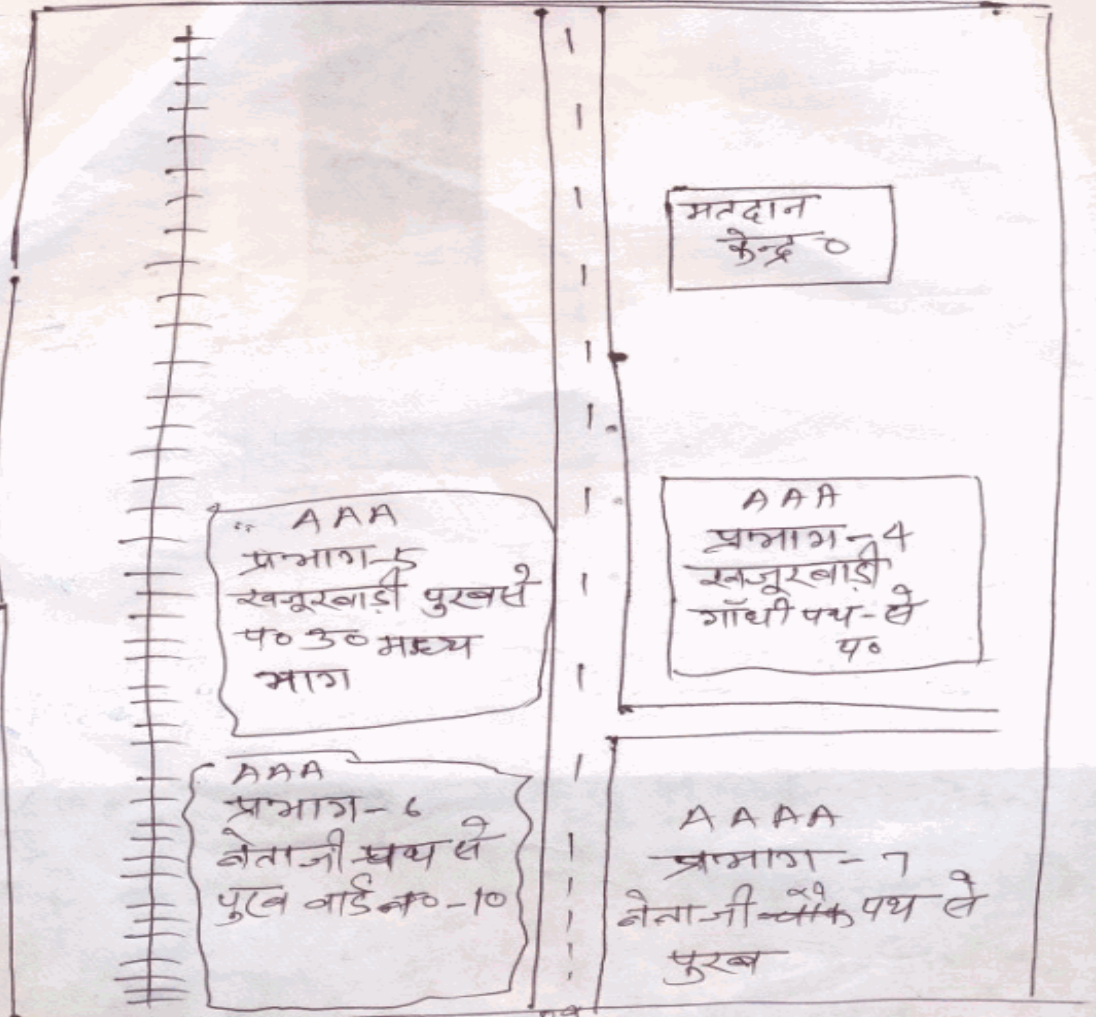 मतदान
केन्द्र ०
AAA
प्रभाग-5
खजूरबाड़ी पुरब से
प० उ० मध्य
भाग
AAA
प्रभाग-4
खजूरबाड़ी
गाँधी पथ-से
प०
AAA
प्रभाग-6
नेताजी पथ से
पुरब वार्ड न०-10
AAAA
प्रभाग-7
नेताजी पथ से
पुरब